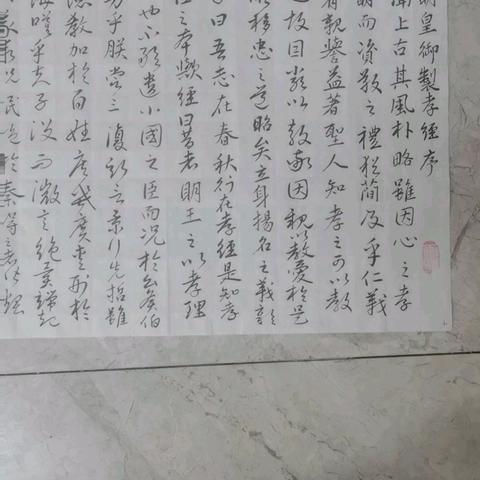 明皇御製孝經序
聞上古其風朴略雖因心之孝
萌而資敬之禮猶簡及乎仁義
有親譽益著聖人知孝之可以教
也故因嚴以教敬因親以教愛於是
移忠之道昭矣立身揚名之義彰
子曰吾志在春秋行在孝經是知孝
之本歟經曰昔者明王之以孝理
也不敢遺小國之臣而況於公侯伯
男乎朕嘗三復斯言景行先哲雖
德教加於百姓庶幾廣愛形於
海嗟乎夫子沒而微言絕異端起
況泯絕於秦得之者皆煨